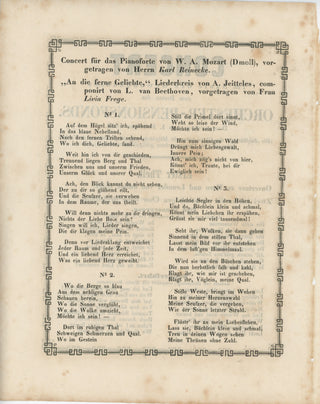 Concert für das Pianoforte von W. A. Mozart (Dmoll), vor-
getragen von Herrn Karl Reinecke.
„An die ferne Geliebte,“ Liederkreis von A. Jeitteles, com-
ponirt von L. van Beethoven, vorgetragen von Frau
Livia Frege.
No 1.
Auf dem Hügel sitz' ich, spähend
In das blaue Nebelland,
Nach den fernen Triften sehend,
Wo ich dich, Geliebte, fand.
Weit bin ich von dir geschieden,
Trennend liegen Berg und Thal
Zwischen uns und unserm Frieden,
Unserm Glück und unsrer Qual.
Ach, den Blick kannst du nicht sehen,
Der zu dir so glühend eilt,
Und die Seufzer, sie verwehen
In dem Raume, der uns theilt.
Will denn nichts mehr zu dir dringen,
Nichts der Liebe Bote sein?
Singen will ich, Lieder singen,
Die dir klagen meine Pein.
Denn vor Liederklang entweichet
Jeder Raum und jede Zeit,
Und ein liebend Herz erreichet,
Was ein liebend Herz geweiht.
No 2.
Wo die Berge so blau
Aus dem nebligen Grau
Schauen herein,
Wo die Sonne verglüht,
Wo die Wolke umzieht,
Möchte ich sein! —
Dort im ruhigen Thal
Schweigen Schmerzen und Qual.
Wo im Gestein
Still die Primel dort sinnt,
Weht so leise der Wind,
Möchte ich sein! —
Hin zum sinnigen Wald
Drängt mich Liebesgewalt,
Innere Pein.
Ach, mich zög's nicht von hier,
Könnt' ich, Traute, bei dir
Ewiglich sein!
No 3.
Leichte Segler in den Höhen,
Und du, Bächlein klein und schmal,
Könnt mein Liebchen ihr erspähen,
Grüsst sie mir viel tausendmal!
Seht ihr, Wolken, sie dann gehen
Sinnend in dem stillen Thal,
Lasst mein Bild vor ihr entstehen
In dem luft'gen Himmelssaal.
Wird sie an den Büschen stehen,
Die nun herbstlich falb und kahl,
Klagt ihr, wie mir ist geschehen,
Klagt ihr, Vöglein, meine Qual.
Stille Weste, bringt im Wehen
Hin zu meiner Herzenswahl
Meine Seufzer, die vergehen,
Wie der Sonne letzter Strahl.
Flüstr' ihr zu mein Liebesflehen,
Lass sie, Bächlein klein und schmal,
Treu in deinen Wogen sehen
Meine Thränen ohne Zahl.